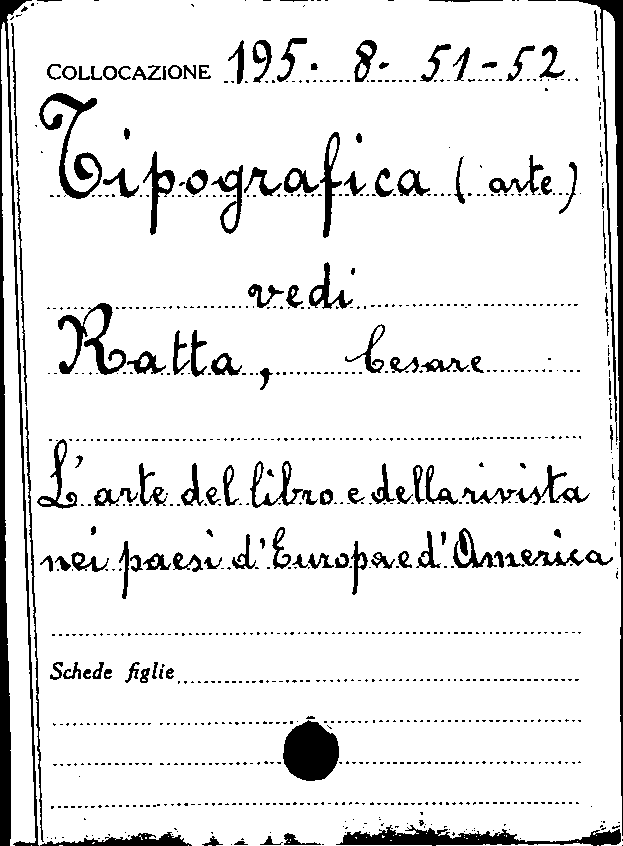 COLLOCAZIONE 195. 8. 51-52
Tipografica (arte)
vedi
Ratta, Cesare
L'arte del libro e della rivista
nei paesi d'Europa e d'America
Schede figlie